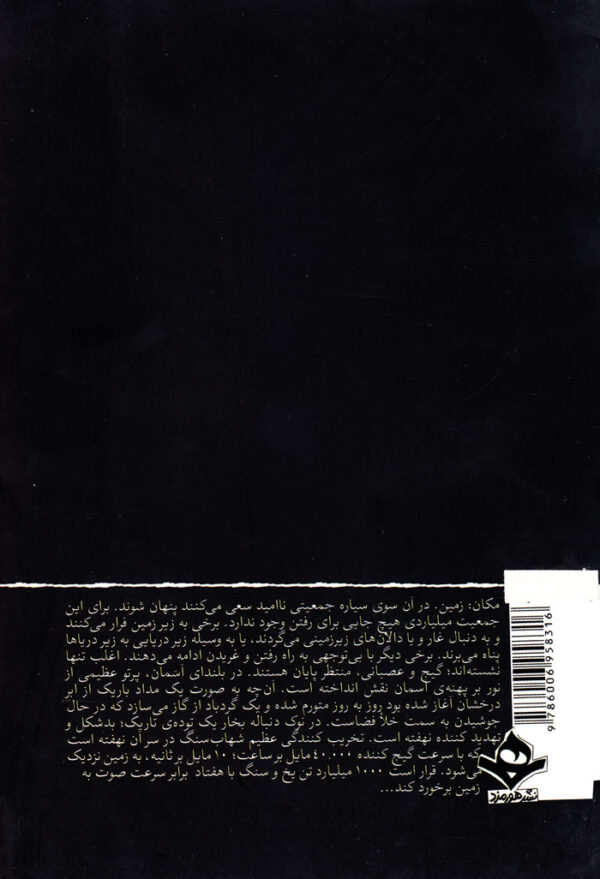 مکان: زمین. در آن سوی سیاره جمعیتی ناامید سعی می‌کنند پنهان شوند. برای این
جمعیت میلیاردی هیچ جایی برای رفتن وجود ندارد. برخی به زیر زمین فرار می‌کنند
و به دنبال غار و یا دالان‌های زیرزمینی می‌گردند، یا به وسیله زیر دریایی به زیر دریاها
پناه می‌برند. برخی دیگر با بی‌توجهی به راه رفتن و غریدن ادامه می‌دهند. اغلب تنها
نشسته‌اند؛ گیج و عصبانی، منتظر پایان هستند. در بلندای آسمان، پرتو عظیمی از
نور بر پهنه‌ی آسمان نقش انداخته است. آن‌چه به صورت یک مداد باریک از ابر
درخشان آغاز شده بود روز به روز متورم شده و یک گردباد از گاز می‌سازد که در حال
جوشیدن به سمت خلأ فضاست. در نوک دنباله بخار یک توده‌ی تاریک؛ بدشکل و
تهدید کننده نهفته است. تخریب کنندگی عظیم شهاب‌سنگ در سر آن نهفته است
که با سرعت گیج کننده ۴۰.۰۰۰ مایل بر ساعت؛ ۱۰ مایل بر ثانیه، به زمین نزدیک
می‌شود. قرار است ۱۰۰۰ میلیارد تن یخ و سنگ با هفتاد برابر سرعت صوت به
زمین برخورد کند...
9 786006 958316
نشر هورمزد